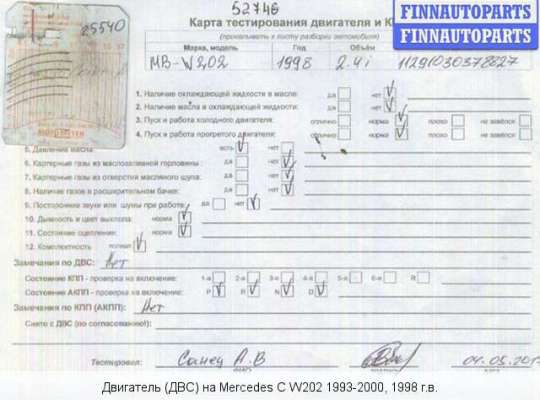 52746
FINNAUTOPARTS
FINNAUTOPARTS
25540
Карта тестирования двигателя и К
(прикалывать к листу разборки автомобиля)
Марка, модель Год Объём
MB-W202 1998 2.4i
1. Наличие охлаждающей жидкости в масле: да нет
2. Наличие масла в охлаждающей жидкости: да нет
3. Пуск и работа холодного двигателя: отлично норма плохо не завёлся
4. Пуск и работа прогретого двигателя: отлично норма плохо не завёлся
5. Давление масла: есть нет
6. Картерные газы из маслозаливной горловины: да нет
7. Картерные газы из отверстия масляного щупа: да нет
8. Наличие газов в расширительном бачке: да нет
9. Посторонние звуки или шумы при работе: да нет
10. Дымность и цвет выхлопа: норма
11. Состояние сцепления: норма
12. Комплектность полная
Замечания по ДВС: Нет
Состояние КПП - проверка на включение: 1-я 2-я 3-я 4-я 5-я 6-я R
Состояние АКПП - проверка на включение: P R N D
Замечания по КПП (АКПП): Нет
Снято с ДВС (по согласованию):
Тестировал: А.В 04.05.201
Двигатель (ДВС) на Mercedes C W202 1993-2000, 1998 г.в.